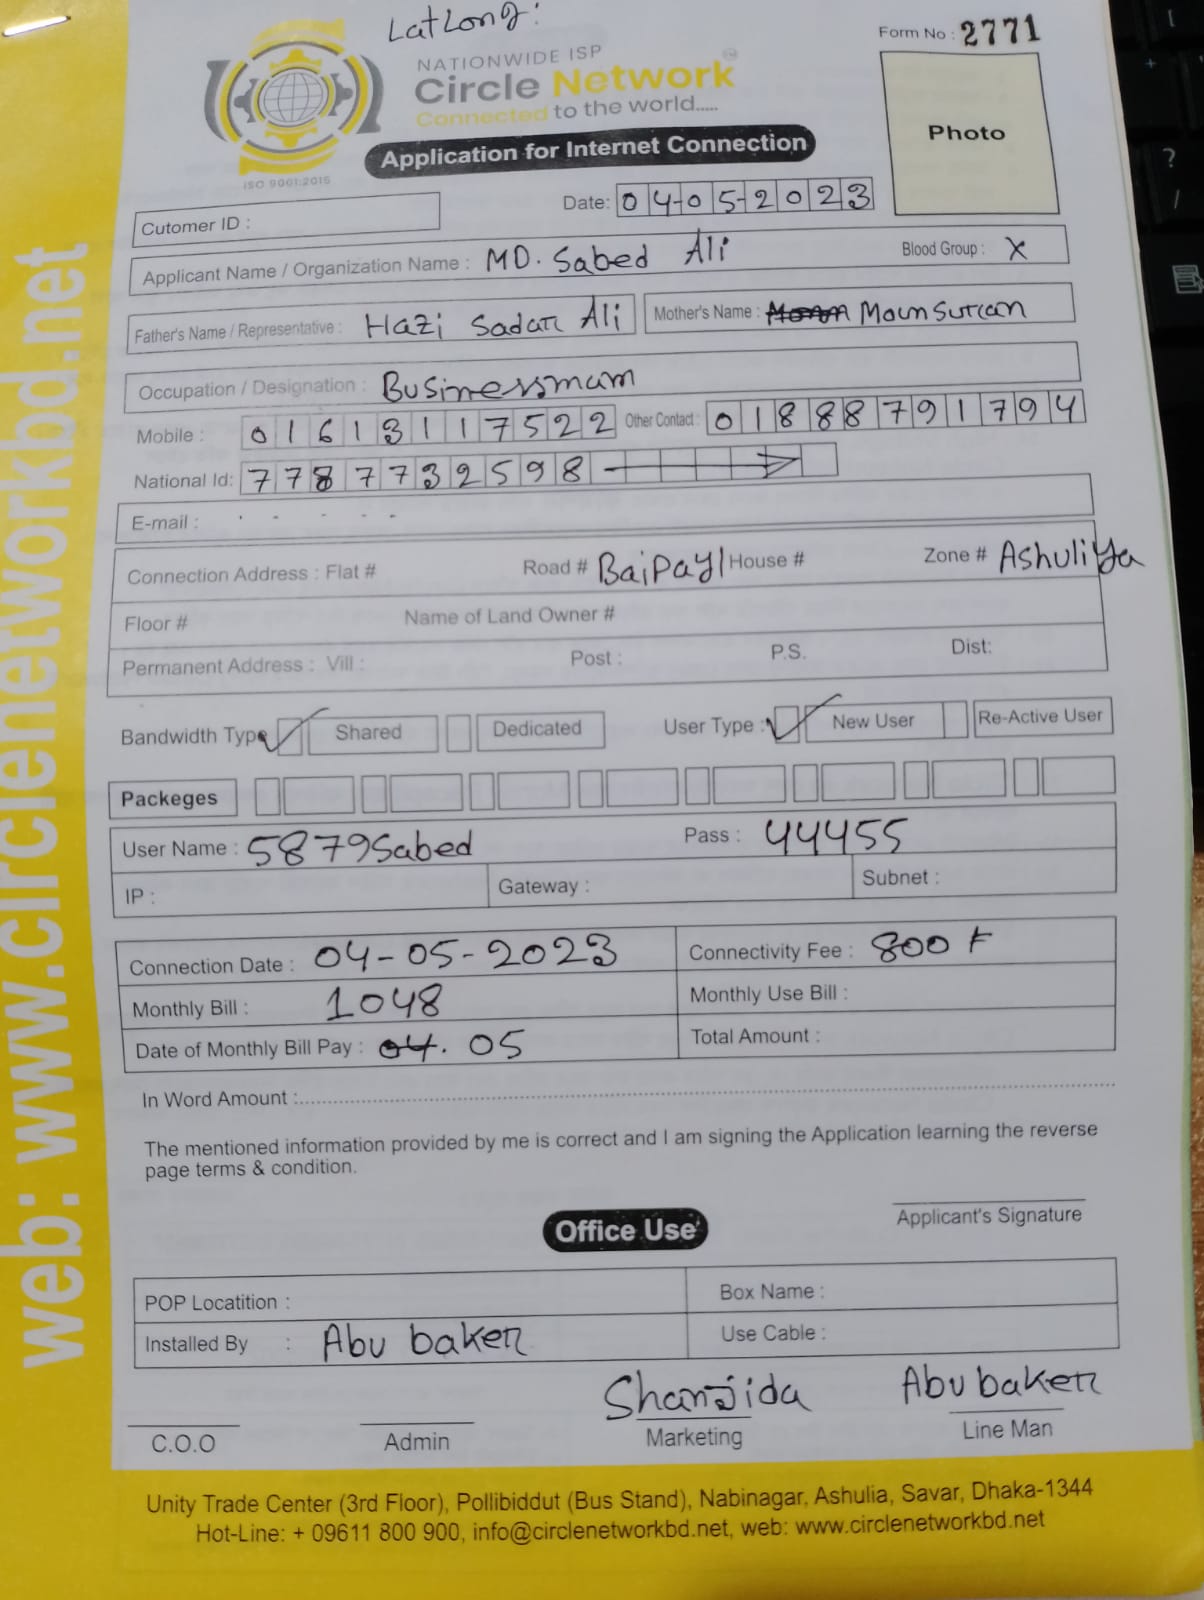 LatLong:
Form No : 2771
NATIONWIDE ISP
Circle Network
Connected to the world.....
ISO 9001:2015
Application for Internet Connection
Photo
Date: 04-05-2023
Cutomer ID :
Applicant Name / Organization Name : MD. Sabed Ali Blood Group : X
Father's Name / Representative : Hazi Sadar Ali Mother's Name : Mounsuran
Occupation / Designation : Businessmam
Mobile : 01613117522 Other Contact : 01888791794
National Id: 7787732598
E-mail : - - - - -
Connection Address : Flat # Road # Baipayl House # Zone # Ashuliya
Floor # Name of Land Owner #
Permanent Address : Vill : Post : P.S. Dist:
Bandwidth Type Shared Dedicated User Type : New User Re-Active User
Packeges
User Name : 5879Sabed Pass : 44455
IP : Gateway : Subnet :
Connection Date : 04-05-2023 Connectivity Fee : 800 F
Monthly Bill : 1048 Monthly Use Bill :
Date of Monthly Bill Pay : 04. 05 Total Amount :
In Word Amount :
The mentioned information provided by me is correct and I am signing the Application learning the reverse
page terms & condition.
Applicant's Signature
Office Use
POP Locatition : Box Name :
Installed By : Abu baker Use Cable :
Shanjida Abu baker
C.O.O Admin Marketing Line Man
Unity Trade Center (3rd Floor), Pollibiddut (Bus Stand), Nabinagar, Ashulia, Savar, Dhaka-1344
Hot-Line: + 09611 800 900, info@circlenetworkbd.net, web: www.circlenetworkbd.net
web: www.circlenetworkbd.net